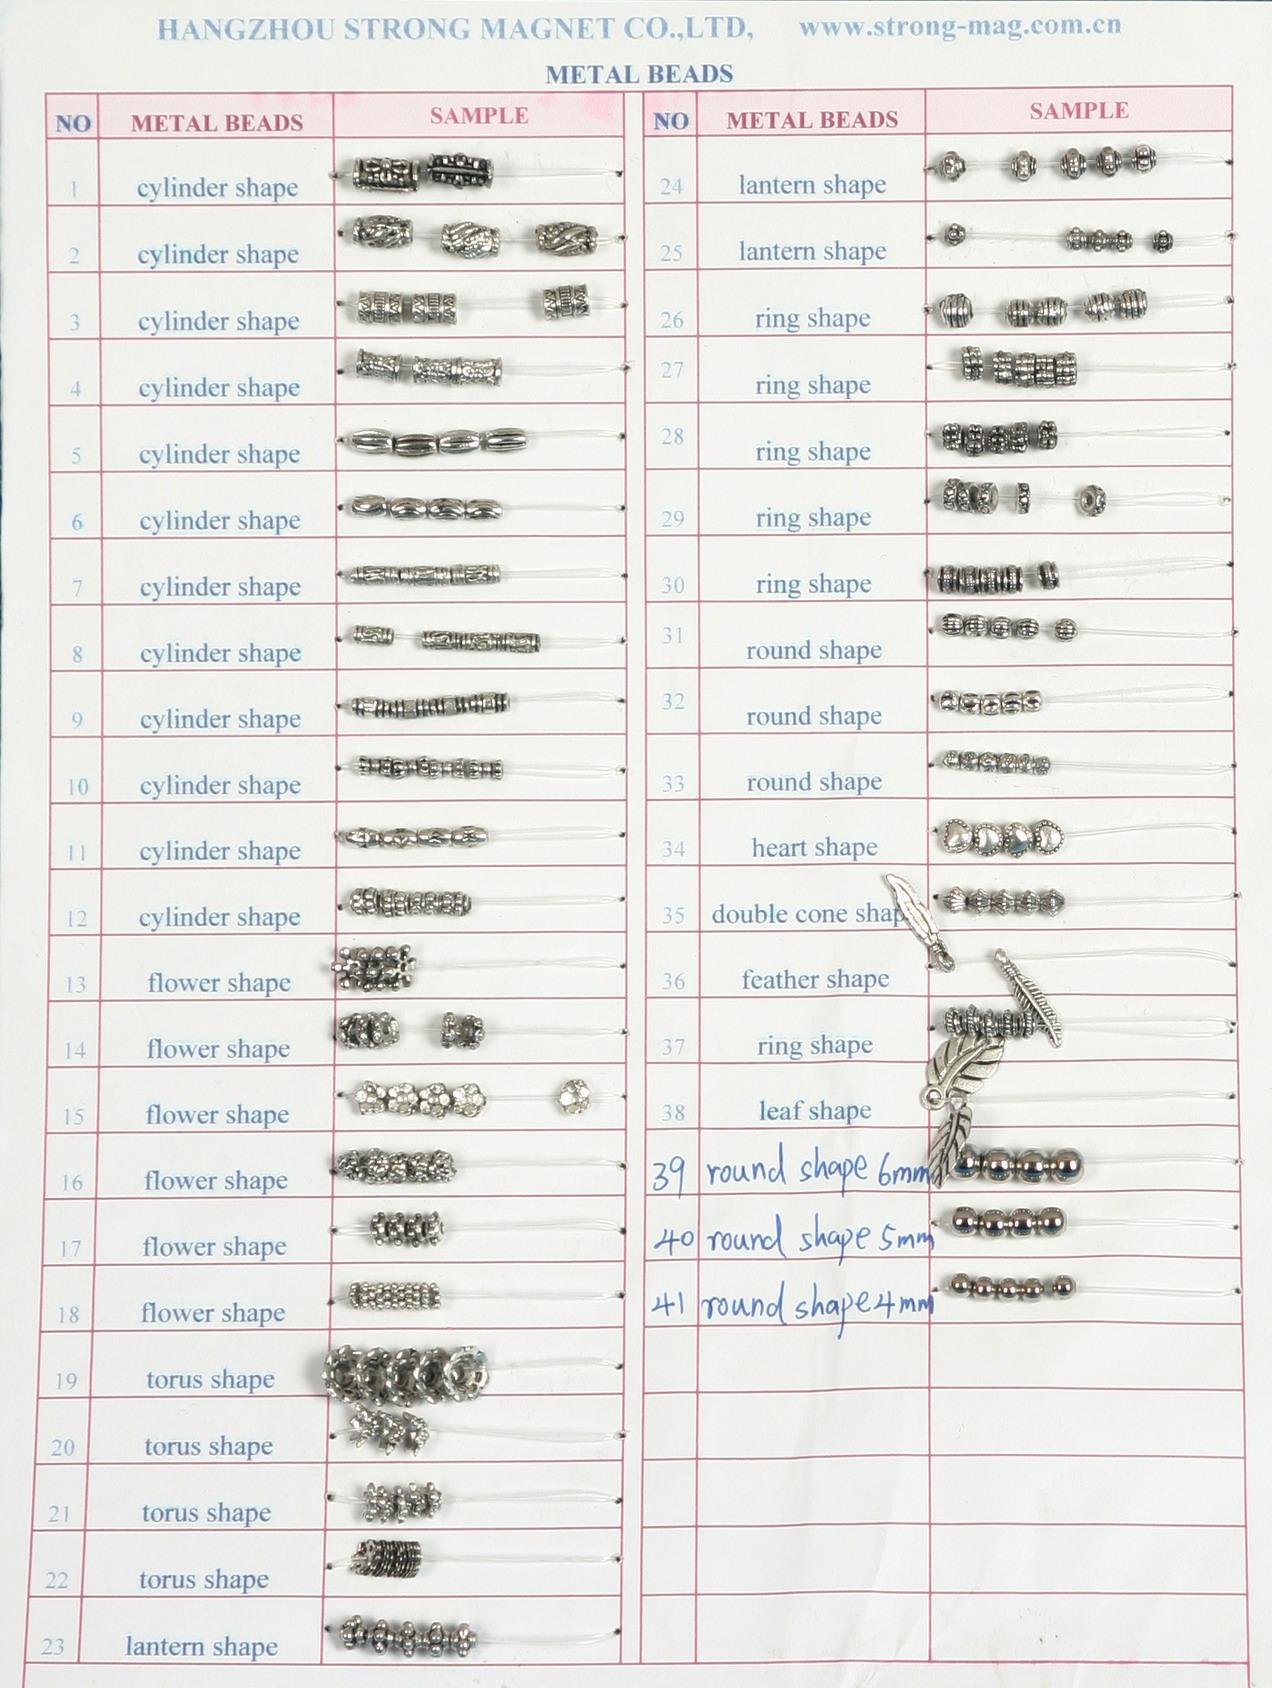 HANGZHOU STRONG MAGNET CO.,LTD, www.strong-mag.com.cn
METAL BEADS
NO METAL BEADS SAMPLE
1 cylinder shape
2 cylinder shape
3 cylinder shape
4 cylinder shape
5 cylinder shape
6 cylinder shape
7 cylinder shape
8 cylinder shape
9 cylinder shape
10 cylinder shape
11 cylinder shape
12 cylinder shape
13 flower shape
14 flower shape
15 flower shape
16 flower shape
17 flower shape
18 flower shape
19 torus shape
20 torus shape
21 torus shape
22 torus shape
23 lantern shape
NO METAL BEADS SAMPLE
24 lantern shape
25 lantern shape
26 ring shape
27 ring shape
28 ring shape
29 ring shape
30 ring shape
31 round shape
32 round shape
33 round shape
34 heart shape
35 double cone shap
36 feather shape
37 ring shape
38 leaf shape
39 round shape 6mm
40 round shape 5mm
41 round shape 4mm